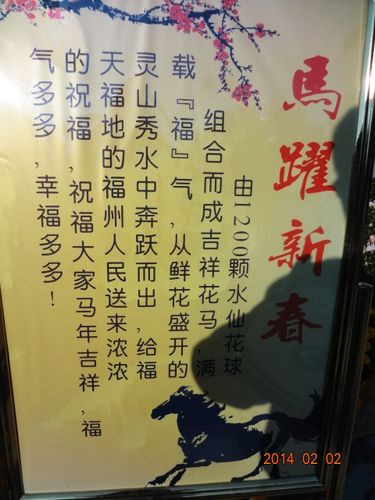 馬躍新春
由1200颗水仙花球
组合而成吉祥花马,满
载『福』气,从鲜花盛开的
灵山秀水中奔跃而出,给福
天福地的福州人民送来浓浓
的祝福,祝福大家马年吉祥,福
气多多,幸福多多!
2014 02 02